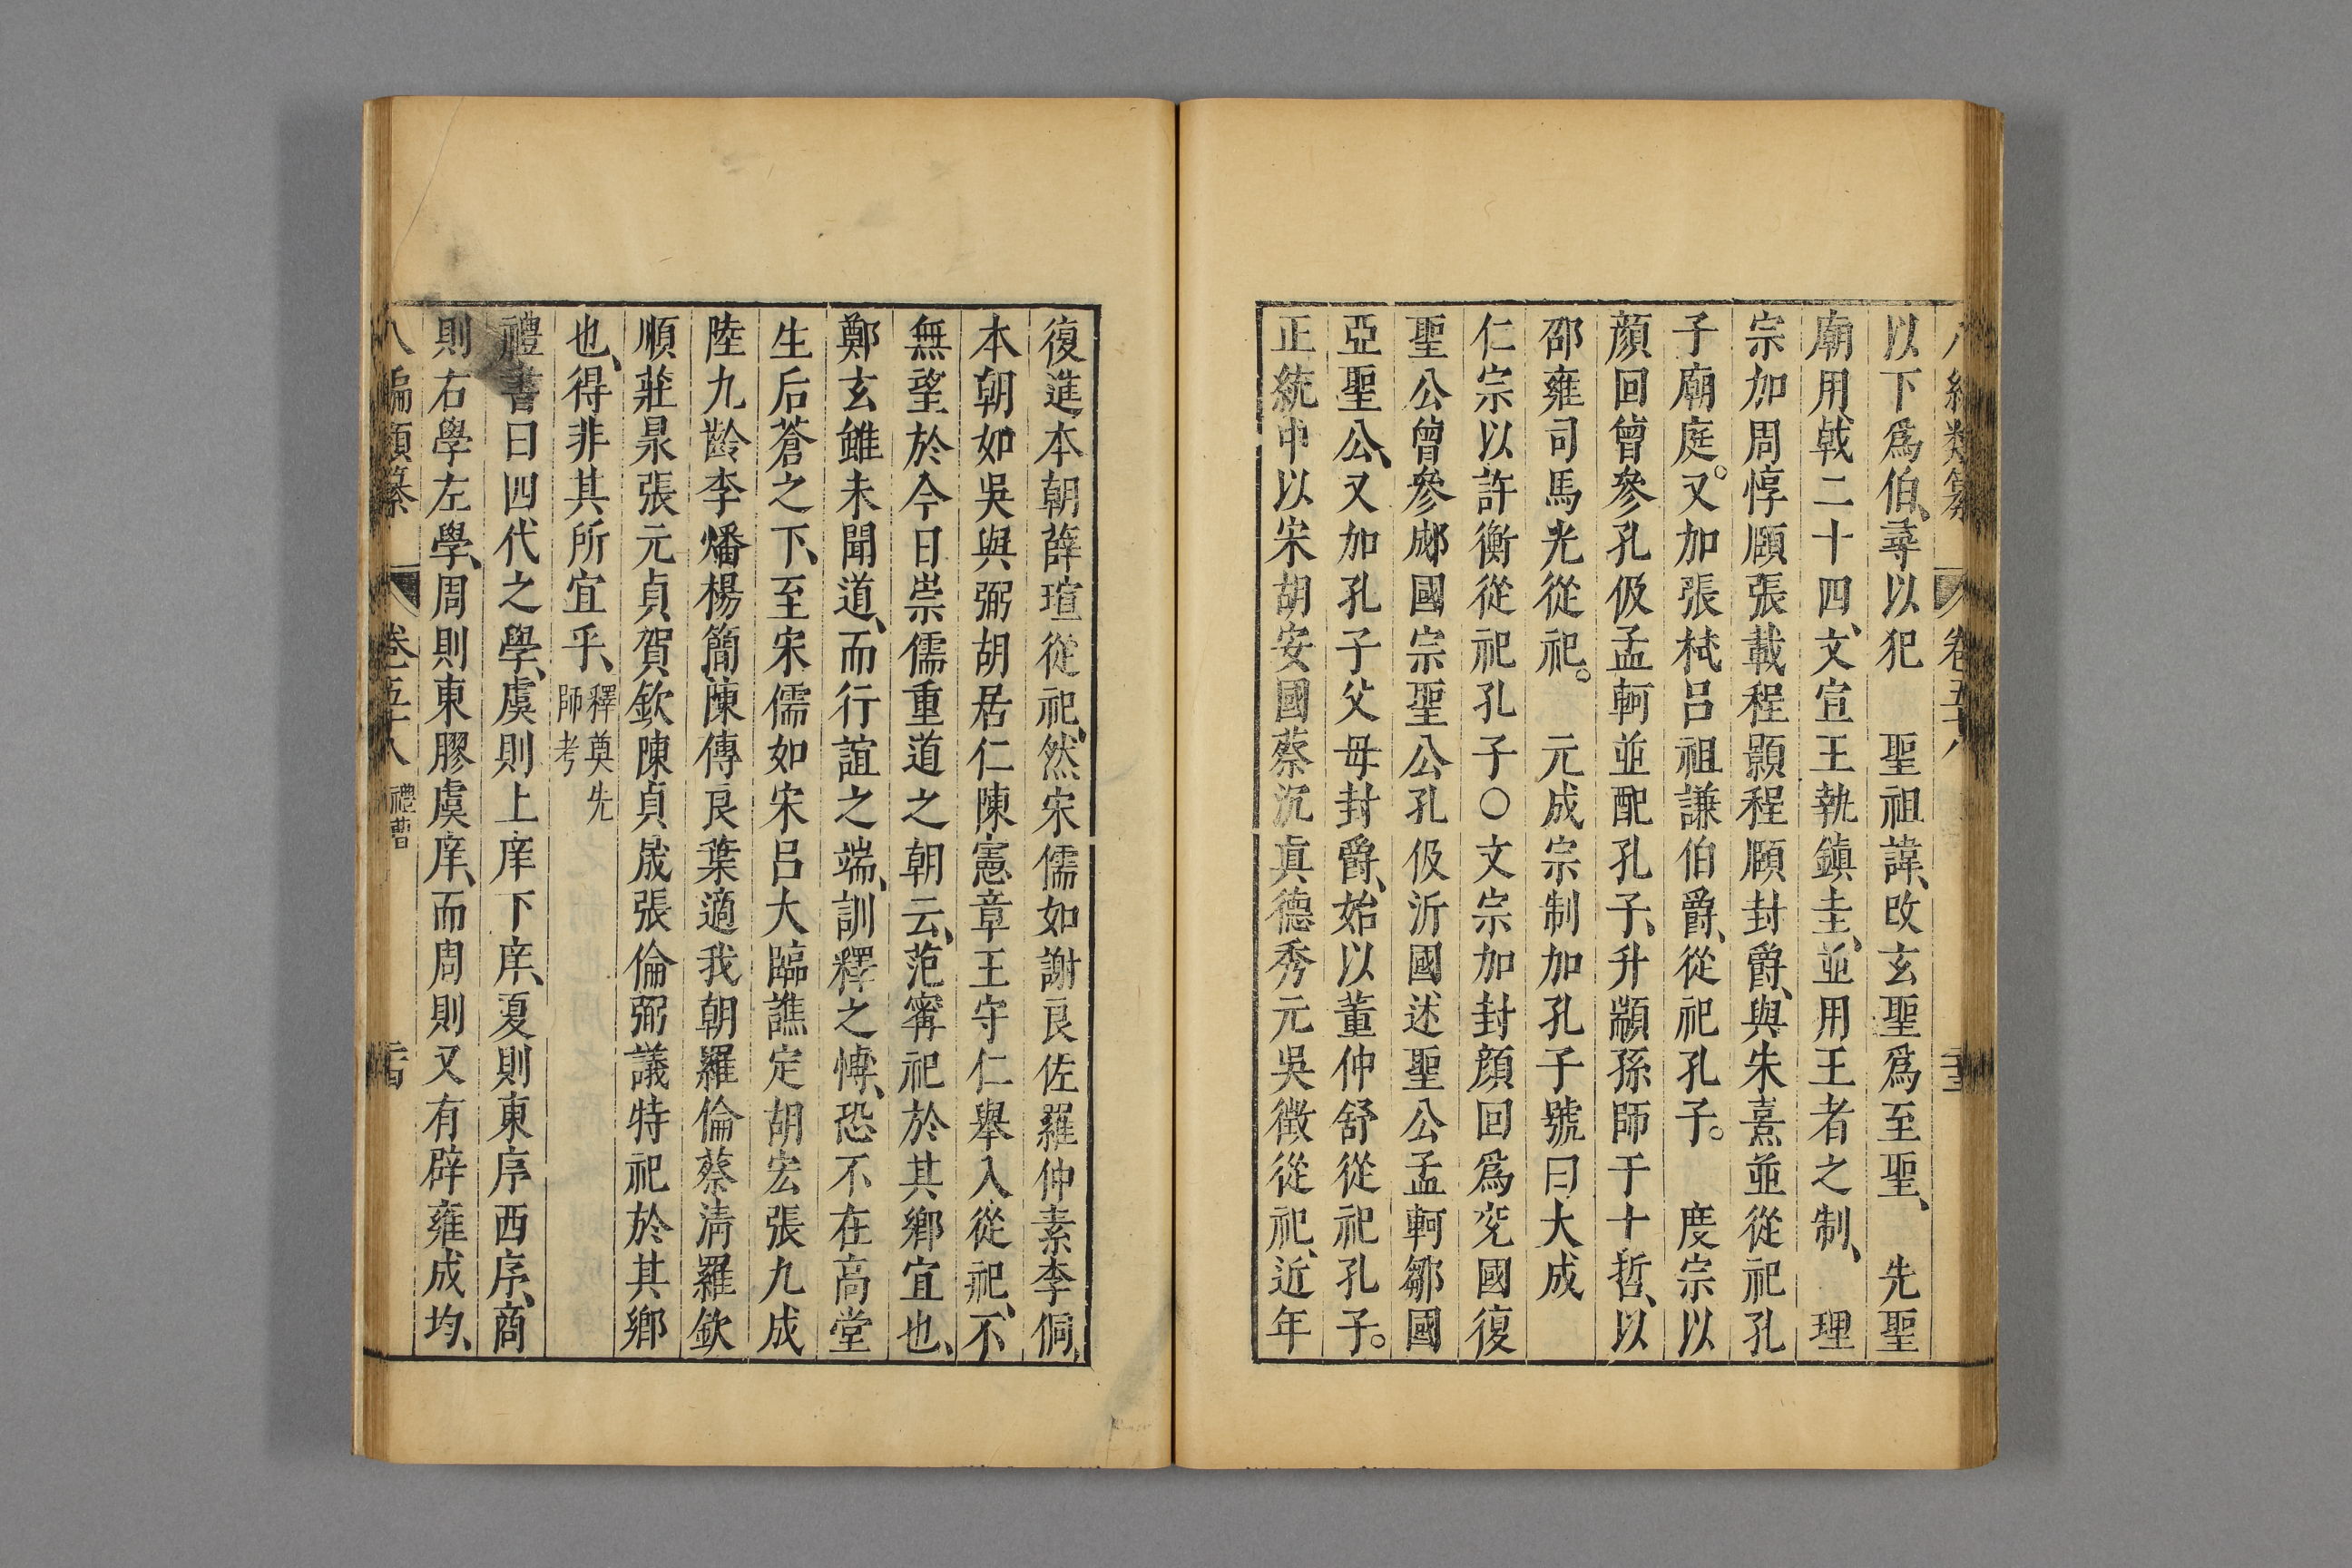 以下爲伯、尋以犯　聖祖諱、改玄聖爲至聖、　先聖
廟用戟二十四、文宣王執鎮圭、並用王者之制、　理
宗加周惇頤張載程顥程頤封爵、與朱熹並從祀孔
子廟庭。又加張栻吕祖謙伯爵、從祀孔子。　度宗以
顔回曾參孔伋孟軻並配孔子、升顓孫師于十哲、以
邵雍司馬光從祀。　元成宗制加孔子號曰大成
仁宗以許衡從祀孔子〇文宗加封顔回爲兖國復
聖公曾參郕國宗聖公孔伋沂國述聖公孟軻鄒國
亞聖公、又加孔子父母封爵、始以董仲舒從祀孔子。
正統中以宋胡安國蔡沉眞德秀元吳徵從祀、近年
復進本朝薛瑄從祀、然宋儒如謝良佐羅仲素李侗、
本朝如吳與弼胡居仁陳憲章王守仁舉入從祀、不
無望於今日崇儒重道之朝云、范甯祀於其鄉宜也、
鄭玄雖未聞道、而行誼之端、訓釋之慱、恐不在高堂
生后蒼之下、至宋儒如宋吕大臨譙定胡宏張九成
陸九齡李燔楊簡陳傳良葉適我朝羅倫蔡淸羅欽
順莊㫤張元貞賀欽陳貞晟張倫弼議特祀於其鄉
也、得非其所宜乎、釋奠先師考
禮書曰四代之學、虞則上庠下庠、夏則東序西序、商
則右學左學、周則東膠虞庠、而周則又有辟雍成均、
八編類纂　卷五十八　禮曹